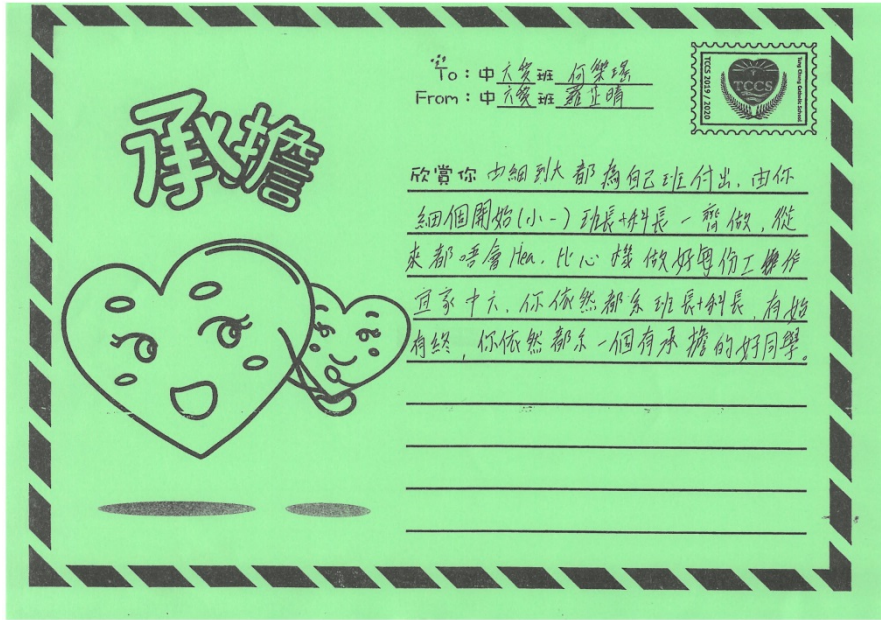 承擔
To：中六愛班 何傑瑤
From：中六愛班 羅芷晴
TCCS 2019 / 2020
TCCS
Tung Chung Catholic School
欣賞你 由細到大都為自己班付出，由你
細個開始(小一) 班長+科長一齊做，從
來都唔會Hea，比心機做好每份工作
宜家中六，你依然都系班長+科長，有始
有終，你依然都系一個有承擔的好同學。